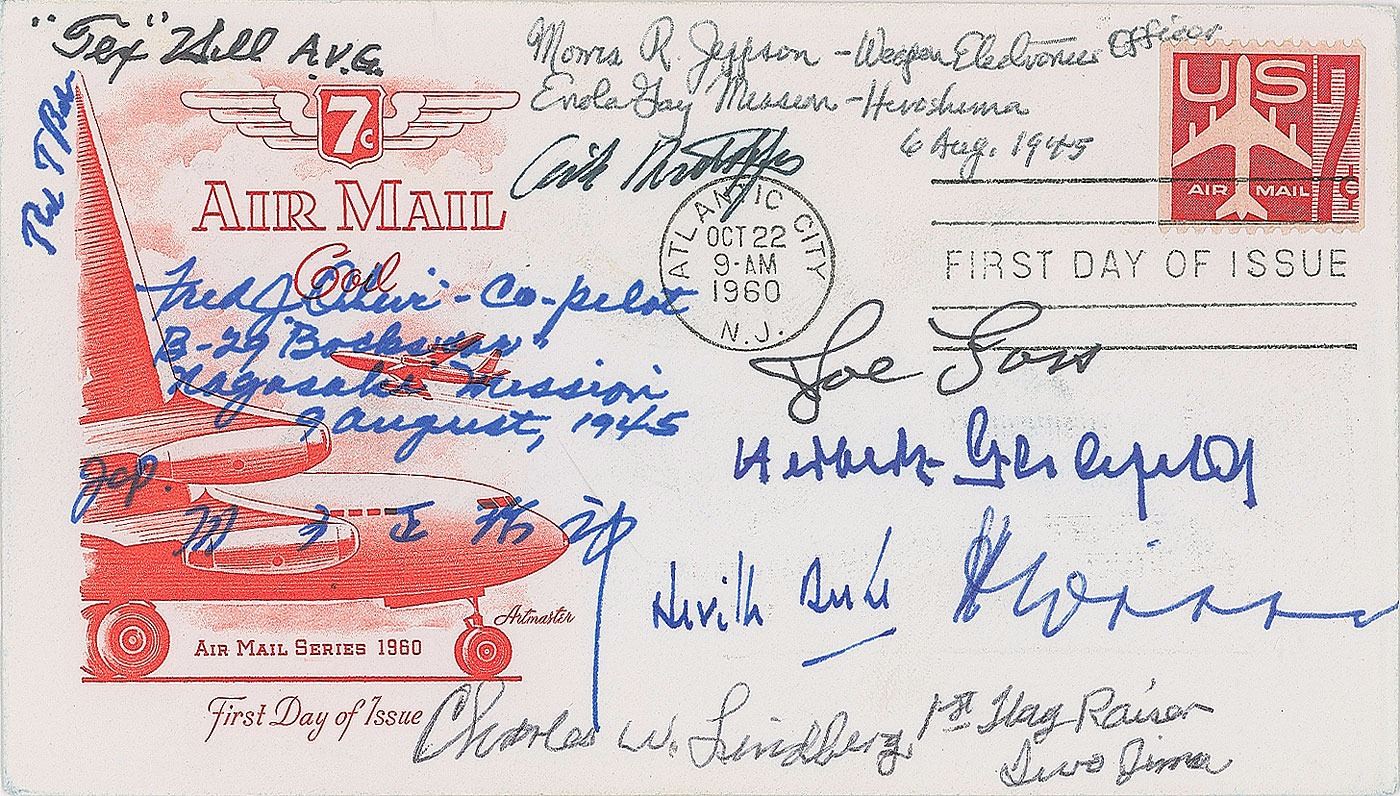 "Tex" Hill A.V.G.
Morris R. Jeppson - Weapon Electronics Officer
Enola Gay Mission - Hiroshima
6 Aug. 1945
US 7¢
AIR MAIL
7c
AIR MAIL
Coil
ATLANTIC CITY
OCT 22
9-AM
1960
N.J.
FIRST DAY OF ISSUE
Fred J Olivi - Co-pilot
B-29 "Bockscar"
Nagasaki Mission
9 August, 1945
Joe Foss
Jap.
Neville Duke
Artmaster
AIR MAIL SERIES 1960
First Day of Issue
Charles W. Lindberg 1st Flag Raiser
Iwo Jima